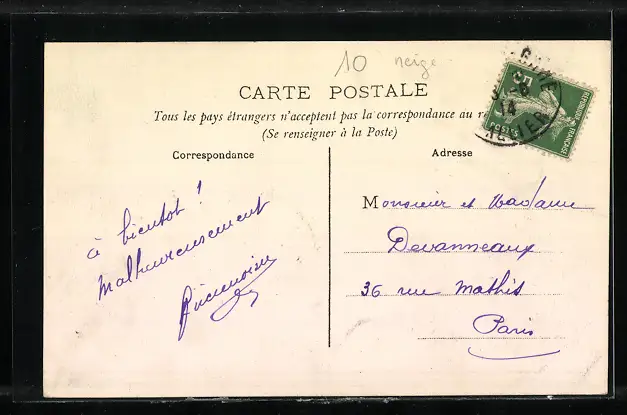 10 neige
CARTE POSTALE
Tous les pays étrangers n'acceptent pas la correspondance au re
(Se renseigner à la Poste)
Correspondance
Adresse
à bientot !
Malheureusement
Monsieur et Madame
Devanneaux
36 rue Mathis
Paris
5c
REPUBLIQUE FRANÇAISE
POSTES
14